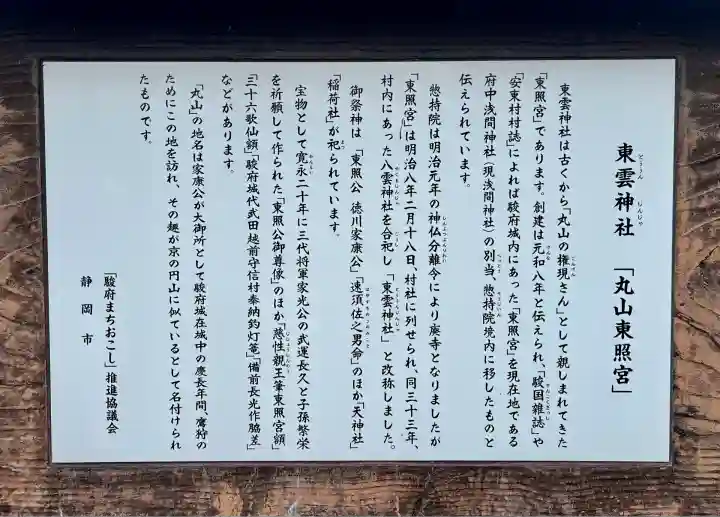 東雲神社 「丸山東照宮」
東雲神社は古くから「丸山の権現さん」として親しまれてきた
「東照宮」であります。創建は元和八年と伝えられ、「駿国雑誌」や
「安東村村誌」によれば駿府城内にあった「東照宮」を現在地である
府中浅間神社（現浅間神社）の別当、惣持院境内に移したものと
伝えられています。
惣持院は明治元年の神仏分離令により廃寺となりましたが
「東照宮」は明治八年二月十八日、村社に列せられ、同三十三年、
村内にあった八雲神社を合祀し「東雲神社」と改称しました。
御祭神は「東照公 徳川家康公」「速須佐之男命」のほか「天神社」
「稲荷社」が祀られています。
宝物として寛永二十年に三代将軍家光公の武運長久と子孫繁栄
を祈願して作られた「東照公御尊像」のほか「慈性親王筆東照宮額」
「三十六歌仙額」「駿府城代武田越前守信村奉納釣灯篭」「備前長光作脇差」
などがあります。
「丸山」の地名は家康公が大御所として駿府城在城中の慶長年間、鷹狩の
ためにこの地を訪れ、その趣が京の円山に似ているとして名付けられ
たものです。
「駿府まちおこし」推進協議会
静岡市